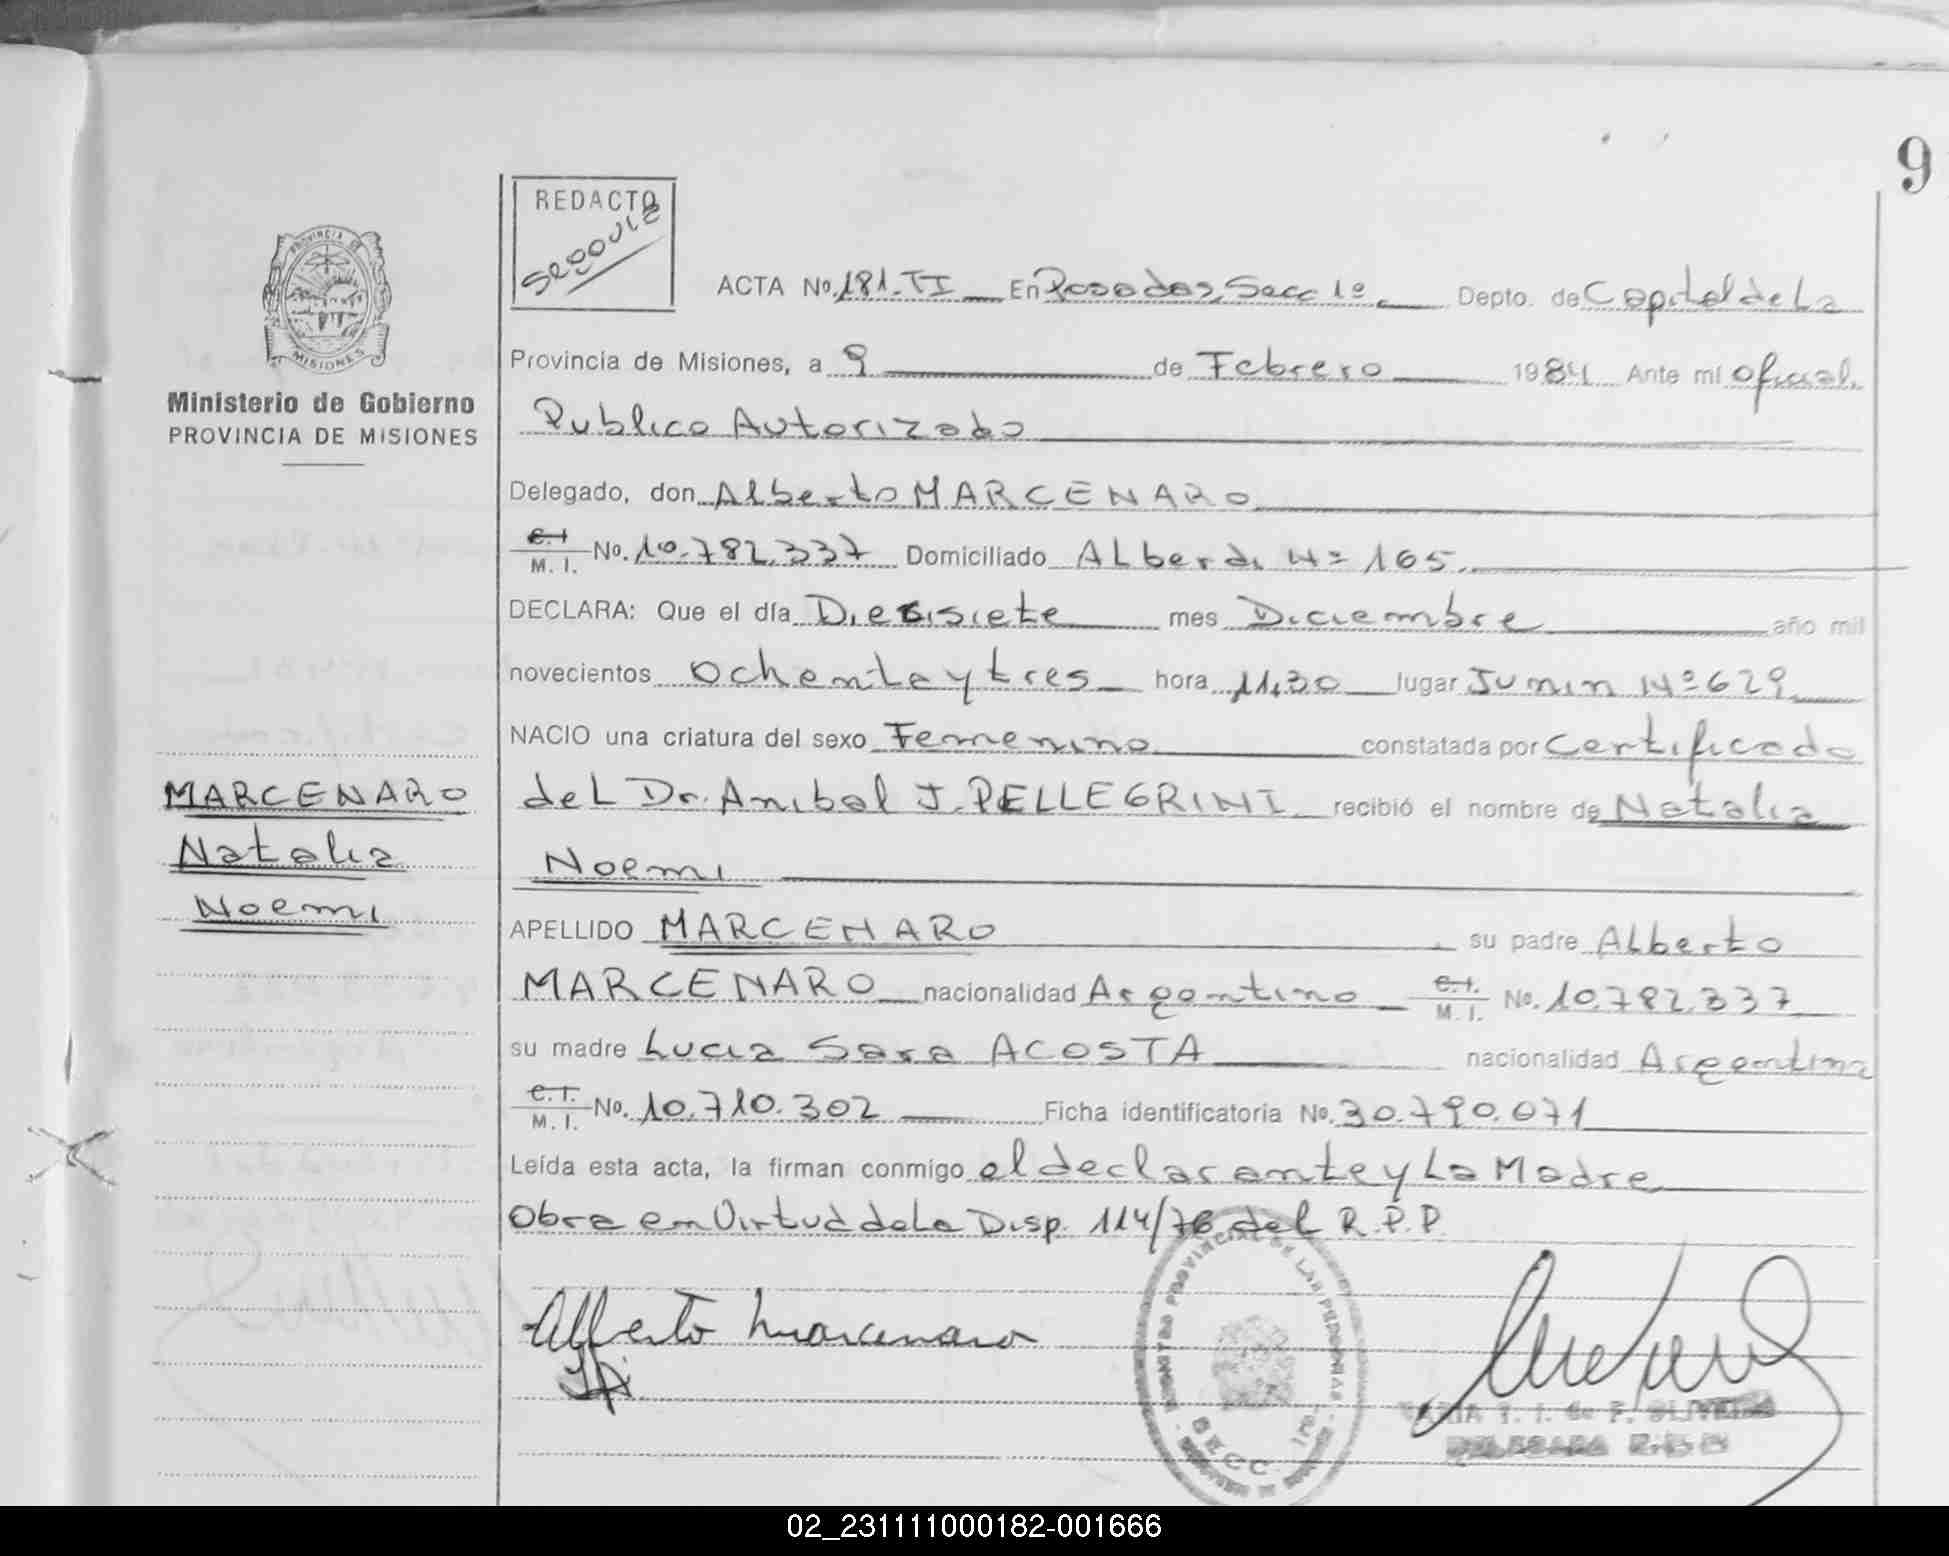 9
REDACTO
PROVINCIA DE
MISIONES
Ministerio de Gobierno
PROVINCIA DE MISIONES
ACTA No. 181.TI En Posadas, Secc 1º Depto. de Capital de La
Provincia de Misiones, a 9 de Febrero 1984 Ante mi Oficial
Publico Autorizado
Delegado, don Alberto MARCENARO
C.I. M. I. No. 10.782.337 Domiciliado ALberdi Nº 165.
DECLARA: Que el día Diecisiete mes Diciembre año mil
novecientos ochenta y tres hora 11,30 lugar Junin Nº 629
NACIO una criatura del sexo Femenino constatada por Certificado
MARCENARO
Natalia
Noemi
del Dr. Anibal J. PELLEGRINI recibió el nombre de Natalia
Noemi
APELLIDO MARCENARO su padre ALberto
MARCENARO nacionalidad Argentino C.I. M. I. No. 10.782.337
su madre Lucia Sara ACOSTA nacionalidad Argentina
C.I. M. I. No. 10.710.302 Ficha identificatoria No. 30.790.071
Leída esta acta, la firman conmigo el declarante y La Madre
Obra en Virtud de La Disp. 114/76 del R.P.P.
Alberto Marcenaro
SECC. 1ra.
02_231111000182-001666